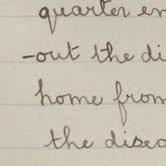 quarter en
-out the di
home from
the disea